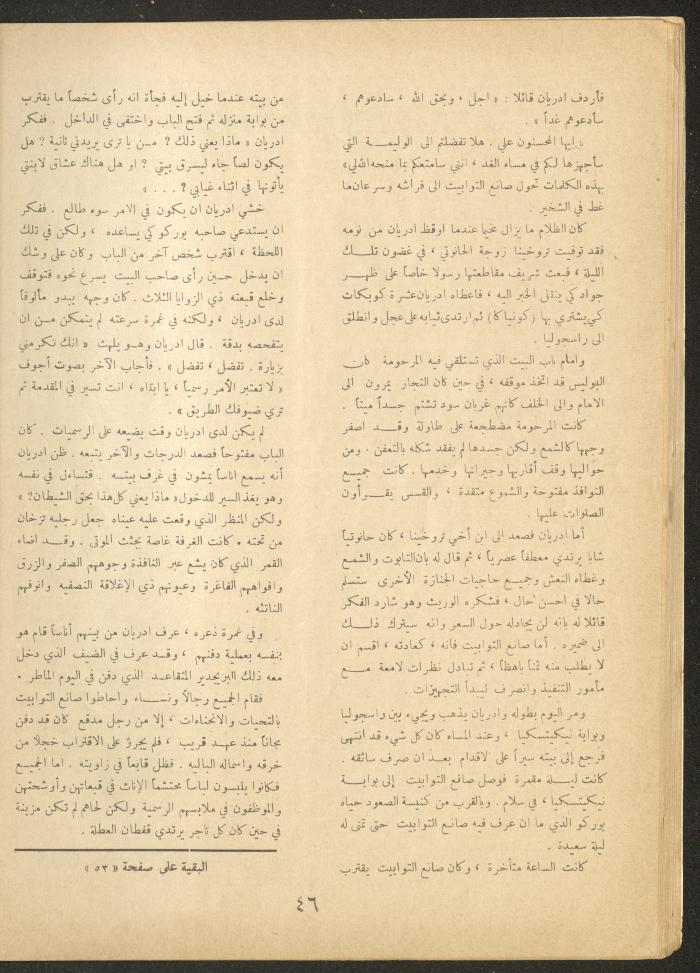 فأردف ادريان قائلا : « اجل ، وبحق الله ، سادعوهم ،
سأدعوهم غداً » .
ايها المحسنون علي . هلا تفضلتم الى الوليمة التي
سأجهزها لكم في مساء الغد ، انني سامتعكم بما منحه الله لي»
بهذه الكلمات تحول صانع التوابيت الى فراشه وسرعان ما
غط في الشخير .
كان الظلام ما يزال مخيما عندما اوقظ ادريان من نومه
فقد توفيت تروخينا زوجة الحانوتي ، في غضون تلك
الليلة ، فبعث شريف مقاطعتها رسولا خاصاً على ظهر
جواد كي ينقل الخبر اليه ، فاعطاه ادريان عشرة كوبكات
كي يشتري بها (كونياكا) ثم ارتدى ثيابه على عجل وانطلق
الى راسجوليا .
وامام باب البيت الذي تستلقي فيه المرحومة كان
البوليس قد اتخذ موقفه ، في حين كان التجار يمرون الى
الامام والى الخلف كانهم غربان سود تشتم جسداً ميتاً .
كانت المرحومة مضطجعة على طاولة وقد اصفر
وجهها كالشمع ولكن جسدها لم يفقد شكله بالتعفن . ومن
حواليها وقف أقاربها وجيرانها وخدمها . كانت جميع
النوافذ مفتوحة والشموع متقدة ، والقسس يقرأون
الصلوات عليها .
أما ادريان فصعد الى ابن أخي تروخينا ، كان حانوتياً
شابا يرتدي معطفاً عصرياً ، ثم قال له بان التابوت والشمع
وغطاء النعش وجميع حاجيات الجنازة الأخرى ستسلم
حالا في احسن حال ، فشكره الوريث وهو شارد الفكر
قائلا له بانه لن يجادله حول السعر وانه سيترك ذلك
الى ضميره . أما صانع التوابيت فانه ، كعادته ، اقسم ان
لا يطلب منه ثمناً باهظاً ، ثم تبادل نظرات لامعة مع
مأمور التنفيذ وانصرف ليبدأ التجهيزات .
ومر اليوم بطوله وادريان يذهب ويجيء بين راسجوليا
وبوابة نيكيتسكيا ، وعند المساء كان كل شيء قد انتهى
فرجع إلى بيته سيراً على الاقدام بعد ان صرف سائقه .
كانت ليلة مقمرة فوصل صانع التوابيت إلى بوابة
نيكيتسكيا ، في سلام . وبالقرب من كنيسة الصعود حياه
يوركو الذي ما ان عرف فيه صانع التوابيت حتى تمنى له
ليلة سعيدة .
كانت الساعة متأخرة ، وكان صانع التوابيت يقترب
من بيته عندما خيل إليه فجأة انه رأى شخصاً ما يقترب
من بوابة منزله ثم فتح الباب واختفى في الداخل . ففكر
ادريان « ماذا يعني ذلك ؟ من يا ترى يريدني ثانية ؟ هل
يكون لصاً جاء ليسرق بيتي ؟ او هل هناك عشاق لابنتي
يأتونها في اثناء غيابي ؟ . . . »
خشي ادريان ان يكون في الامر سوء طالع . ففكر
ان يستدعي صاحبه يوركو كي يساعده ، ولكن في تلك
اللحظة ، اقترب شخص آخر من الباب وكان على وشك
ان يدخل حين رأى صاحب البيت يسرع نحوه فتوقف
وخلع قبعته ذي الزوايا الثلاث . كان وجهه يبدو مألوفاً
لدى ادريان ، ولكنه في غمرة سرعته لم يتمكن من ان
يتفحصه بدقة . قال ادريان وهو يلهث « انك تكرمني
بزيارة . تفضل ، تفضل » . فأجاب الآخر بصوت أجوف
« لا تعتبر الأمر رسمياً ، يا ابتاه ، انت تسير في المقدمة ثم
تري ضيوفك الطريق » .
لم يكن لدى ادريان وقت يضيعه على الرسميات . كان
الباب مفتوحاً فصعد الدرجات والآخر يتبعه . ظن ادريان
أنه يسمع اناساً يمشون في غرف بيته . فتساءل في نفسه
وهو يغذ السير للدخول « ماذا يعني كل هذا بحق الشيطان؟ »
ولكن المنظر الذي وقعت عليه عيناه جعل رجليه ترخان
من تحته . كانت الغرفة غاصة بجثث الموتى . وقد اضاء
القمر الذي كان يشع عبر النافذة وجوههم الصفر والزرق
وافواههم الفاغرة وعيونهم ذي الإغلاقة النصفيه وانوفهم
الناتئه .
وفي غمرة ذعره ، عرف ادريان من بينهم أناساً قام هو
بنفسه بعملية دفنهم ، وقد عرف في الضيف الذي دخل
معه ذلك البريجدير المتقاعد الذي دفن في اليوم الماطر .
فقام الجميع رجالاً ونساء واحاطوا صانع التوابيت
بالتحيات والانحناءات ، إلا من رجل مدقع كان قد دفن
مجاناً منذ عهد قريب ، فلم يجرؤ على الاقتراب خجلاً من
خرقه واسماله الباليه . فظل قابعاً في زاويته . اما الجميع
فكانوا يلبسون لباساً محتشماً الإناث في قبعاتهن وأوشحتهن
والموظفون في ملابسهم الرسمية ولكن لحاهم لم تكن مزينة
في حين كان كل تاجر يرتدي قفطان العطلة .
البقية على صفحة « ٥٣ »
٤٦